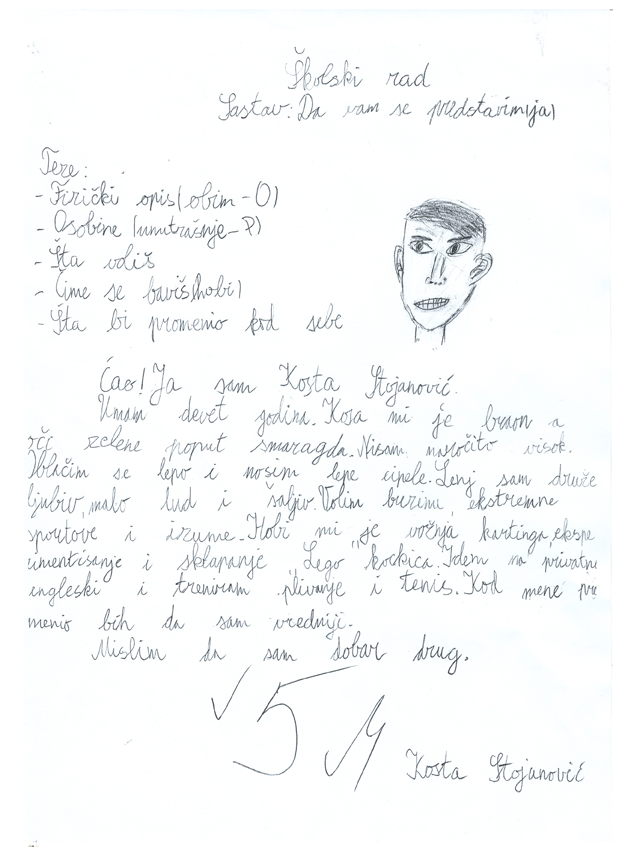 Školski rad
Sastav: Da vam se predstavim(ja)
Teze:
- Fizički opis(obim-O)
- Osobine (unutrašnje-P)
- Šta voliš
- Čime se baviš(hobi)
- Šta bi promenio kod sebe
Ćao! Ja sam Kosta Stojanović.
Umam devet godina. Kosa mi je braon a
oči zelene poput smaragda. Nisam naročito visok.
Oblačim se lepo i nosim lepe cipele. Lenj sam druže
ljubiv, malo lud i šaljiv. Volim brzinu, ekstremne
sportove i izume. Hobi mi je vožnja kartinga, ekspe
rimentisanje i sklapanje „Lego" kockica. Idem na privatni
engleski i treniram plivanje i tenis. Kod mene pro
menio bih da sam vredniji.
Mislim da sam dobar drug.
✓ 5
Kosta Stojanović